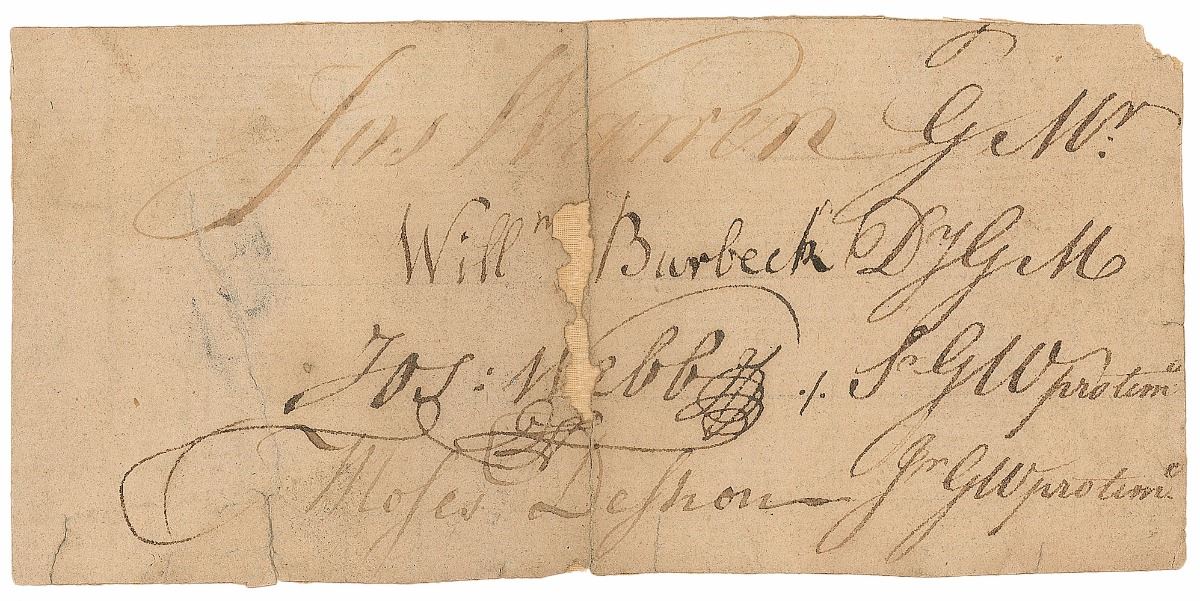 Jos Warren G Mr.
Willm Burbeck Dy G M
Jos: Webb ./. Sr G W protime
Moses Deshon Jr G W protime